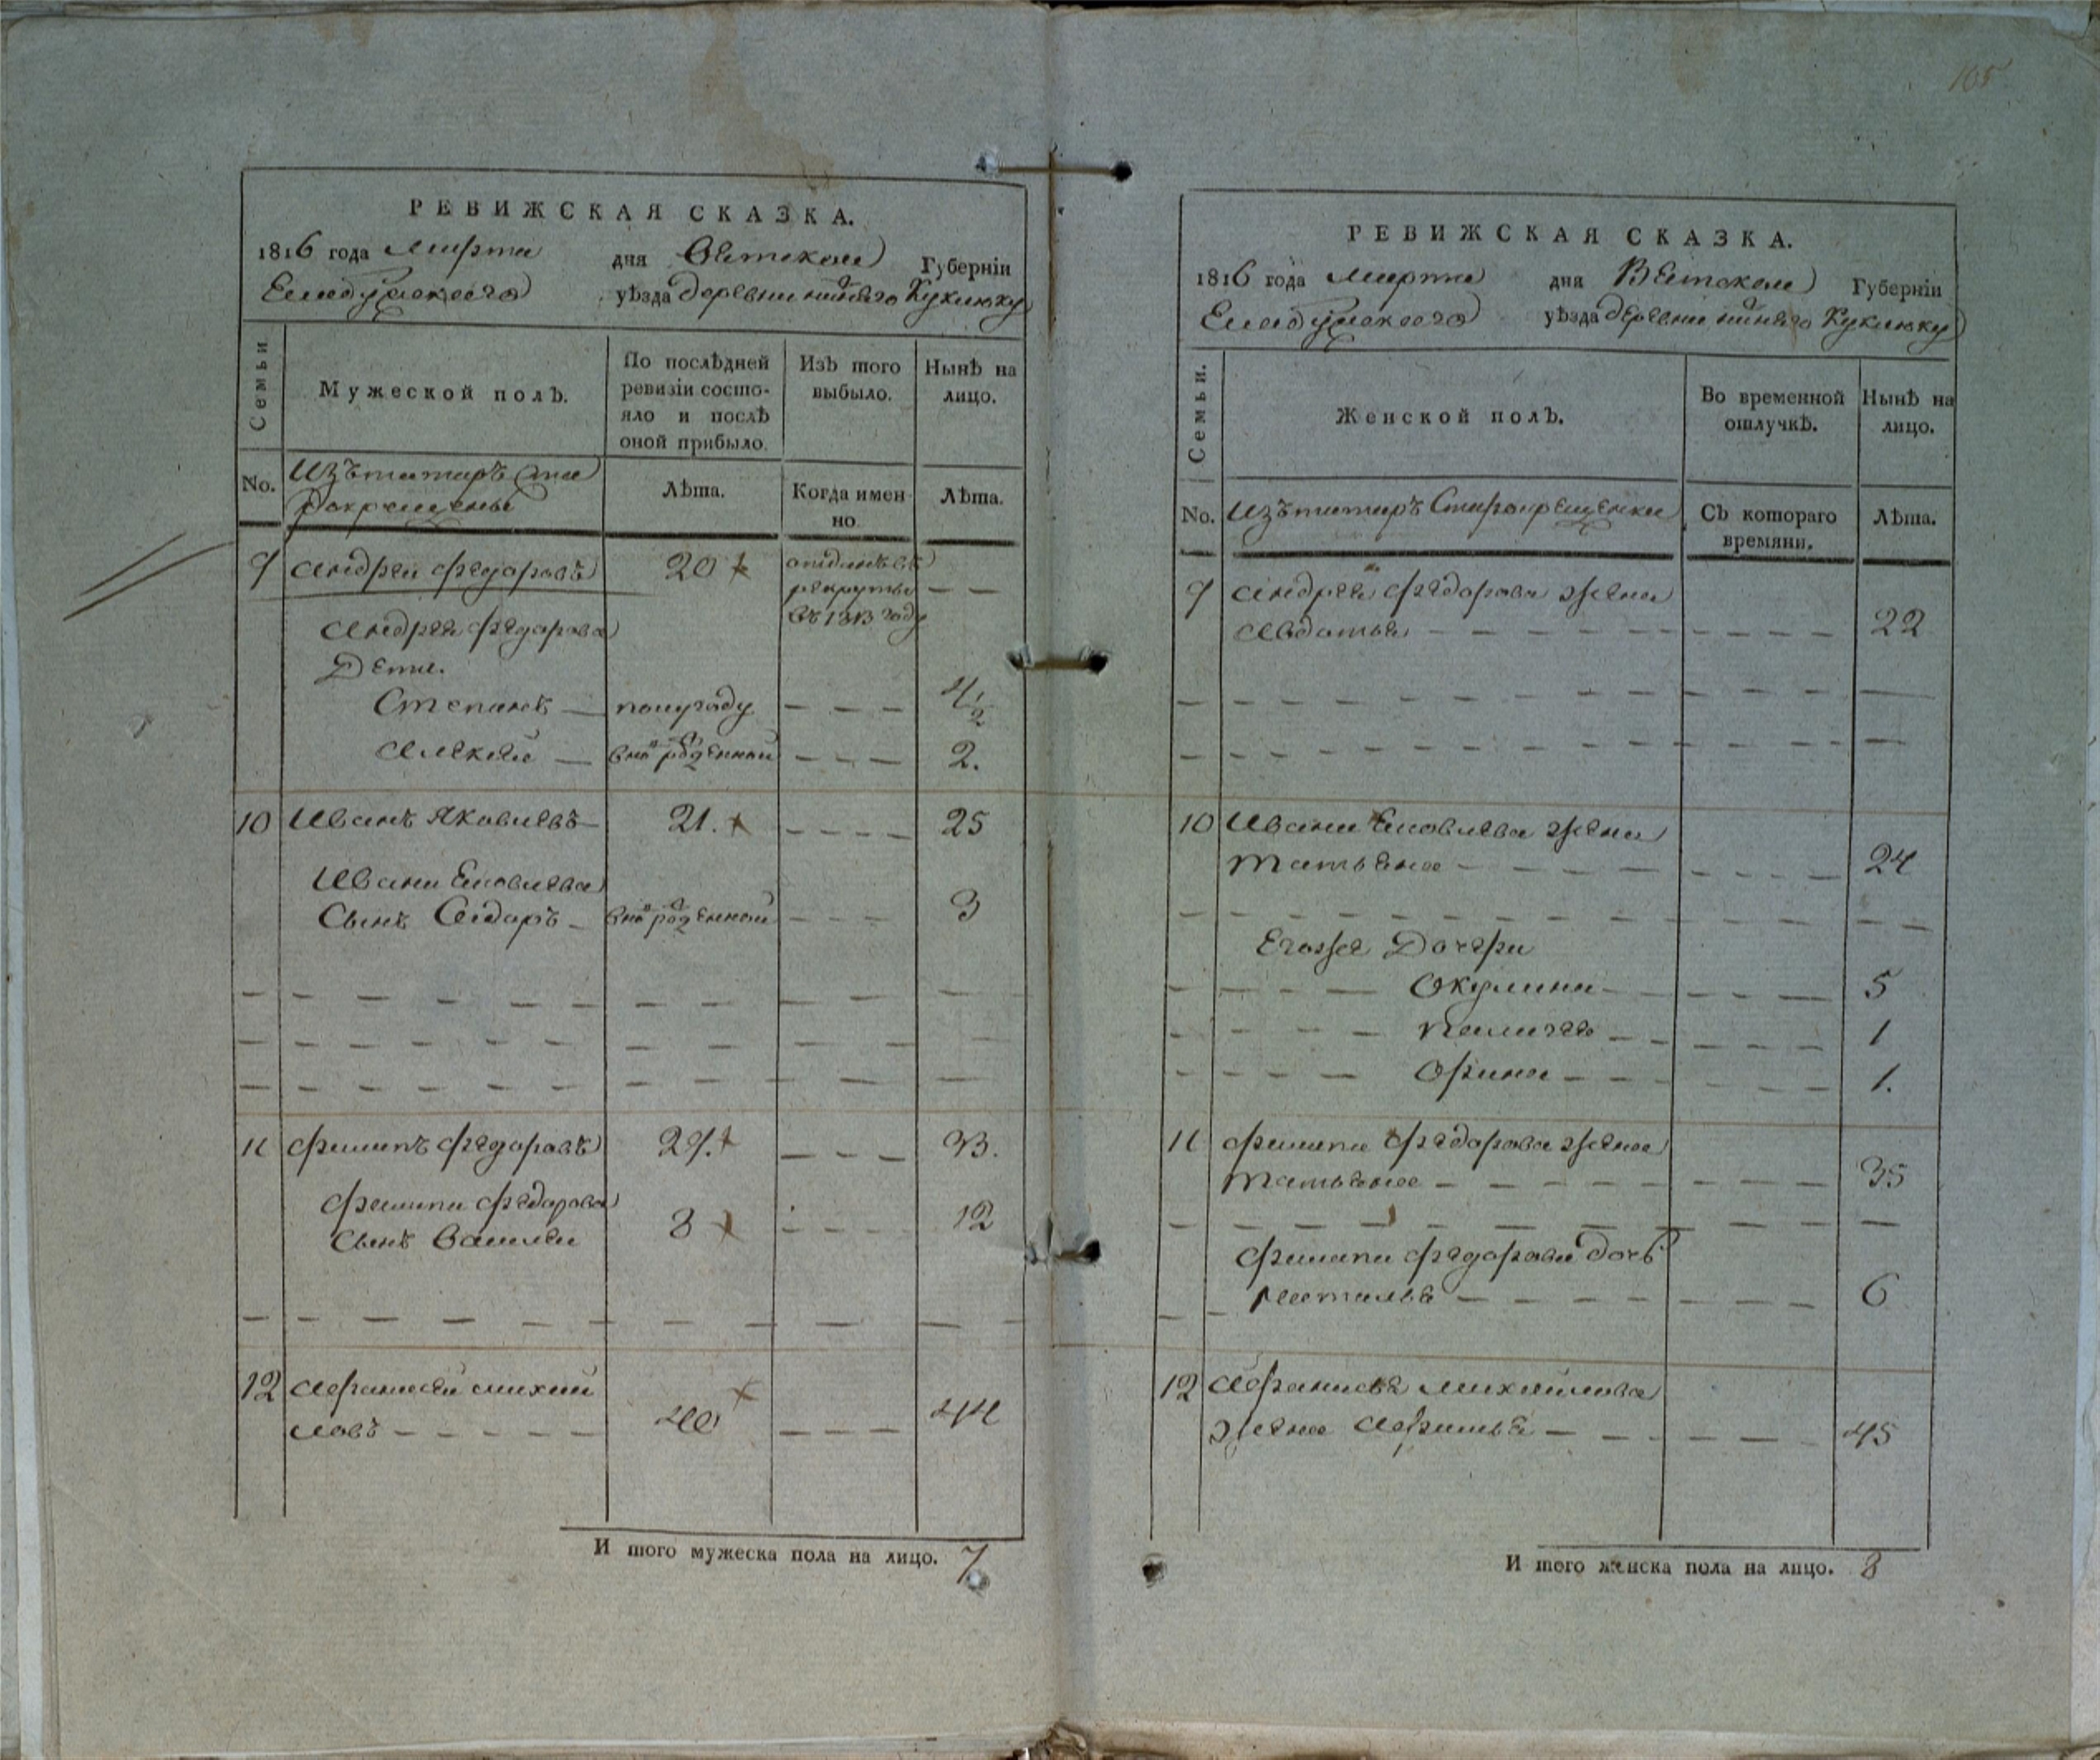 105
РЕВИЖСКАЯ СКАЗКА.
1816 года Марта дня Вятской Губерніи
Елабужского уѣзда деревни нижнего Куклюку
Семьи
Мужеской полъ.
По послѣдней ревизіи состо-
яло и послѣ
оной прибыло.
Изъ того
выбыло.
Нынѣ на
лицо.
No.
Изъ татаръ ста
рокрещены
Лѣта.
Когда имен
но
Лѣта.
9 Андрей Федоровъ 20 отданъ въ
рекруты — —
въ 1813 году
Андрея Федорова
Дети.
Степанъ — полугоду — — — 4 1/2
Алексей — вновь рожденной — — — 2.
10 Иванъ Яковлевъ 21. — — — — 25
Ивана Яковлева
Сынъ Сидоръ — вновь рожденной — — — 3
11 Филипъ Федоровъ 29. — — — 33.
Филипа Федорова
Сынъ Василей 8 — — — — 12
12 Афанасей Михаи
ловъ — — — — — 40 — — — 44
И того мужеска пола на лицо. 7
РЕВИЖСКАЯ СКАЗКА.
1816 года Марта дня Вятской Губерніи
Елабужского уѣзда деревни нижнего Куклюку
Семьи.
Женской полъ.
Во временной
отлучкѣ.
Нынѣ на
лицо.
No.
Изъ татаръ Старокрещенки
Съ котораго
времяни.
Лѣта.
9 Андрея Федорова жена
Авдотья — — — — — — — — — 22
10 Ивана Яковлева жена
Татьяна — — — — — — — — — 24
Егожа Дочери
Окулина — — — — 5
Пелагея — — — — — 1
Орина — — — — — — 1.
11 Филипа Федорова жена
Татьяна — — — — — — — — 35
Филипа Федорова дочь
Наталья — — — — — — — — 6
12 Афанасья Михайлова
жена Афимья — — — — — 45
И того женска пола на лицо. 8